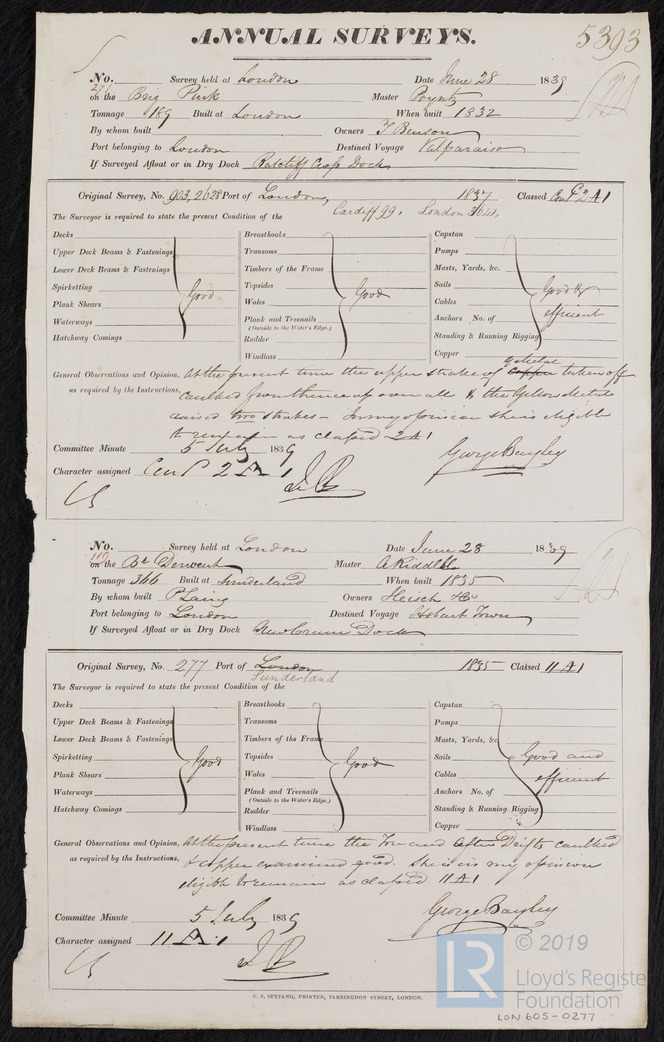 ANNUAL SURVEYS.
5393
No. Survey held at London Date June 28 1839
on the Brig Pink Master Poyntz
Tonnage 189 Built at London When built 1832
By whom built Owners T Benson
Port belonging to London Destined Voyage Valparaiso
If Surveyed Afloat or in Dry Dock Ratcliff Cross Dock
Original Survey, No. 903, 2628 Port of London, 1837 Classed Cont P 2 A 1
Cardiff 99. London 3641.
The Surveyor is required to state the present Condition of the
Decks
Upper Deck Beams & Fastenings
Lower Deck Beams & Fastenings
Spirketting
Plank Shears
Waterways
Hatchway Comings
Good
Breasthooks
Transoms
Timbers of the Frame
Topsides
Wales
Plank and Treenails
(Outside to the Water's Edge.)
Rudder
Windlass
Good
Capstan
Pumps
Masts, Yards, &c.
Sails
Cables
Anchors No. of
Standing & Running Rigging
Copper
Good &
efficient
General Observations and Opinion, At the present time the upper strake of copper taken off
as required by the Instructions, caulked from thence up over all & the Yellow Metal
raised two strakes - In my opinion she is eligible
to remain as classed 2 A 1
Committee Minute 5 July 1839
George Bayley
Character assigned Cont P 2 A 1
No. Survey held at London Date June 28 1839
on the Bk Derwent Master A Riddell
Tonnage 366 Built at Sunderland When built 1835
By whom built P Laing Owners Heisch & Co
Port belonging to London Destined Voyage Hobart Town
If Surveyed Afloat or in Dry Dock New Crane Dock
Original Survey, No. 277 Port of London 1835 Classed 11 A 1
Sunderland
The Surveyor is required to state the present Condition of the
Decks
Upper Deck Beams & Fastenings
Lower Deck Beams & Fastenings
Spirketting
Plank Shears
Waterways
Hatchway Comings
Good
Breasthooks
Transoms
Timbers of the Frame
Topsides
Wales
Plank and Treenails
(Outside to the Water's Edge.)
Rudder
Windlass
Good
Capstan
Pumps
Masts, Yards, &c
Sails
Cables
Anchors No. of
Standing & Running Rigging
Copper
Good and
efficient
General Observations and Opinion, At the present time the Fore and After Drifts caulked
as required by the Instructions, & Copper examined good. She is in my opinion
eligible to remain as classed 11 A 1
Committee Minute 5 July 1839
George Bayley
Character assigned 11 A 1
C. F. SEYFANG, PRINTER, FARRINGDON STREET, LONDON.
LR © 2019
Lloyd's Register
Foundation
LON 605-0277